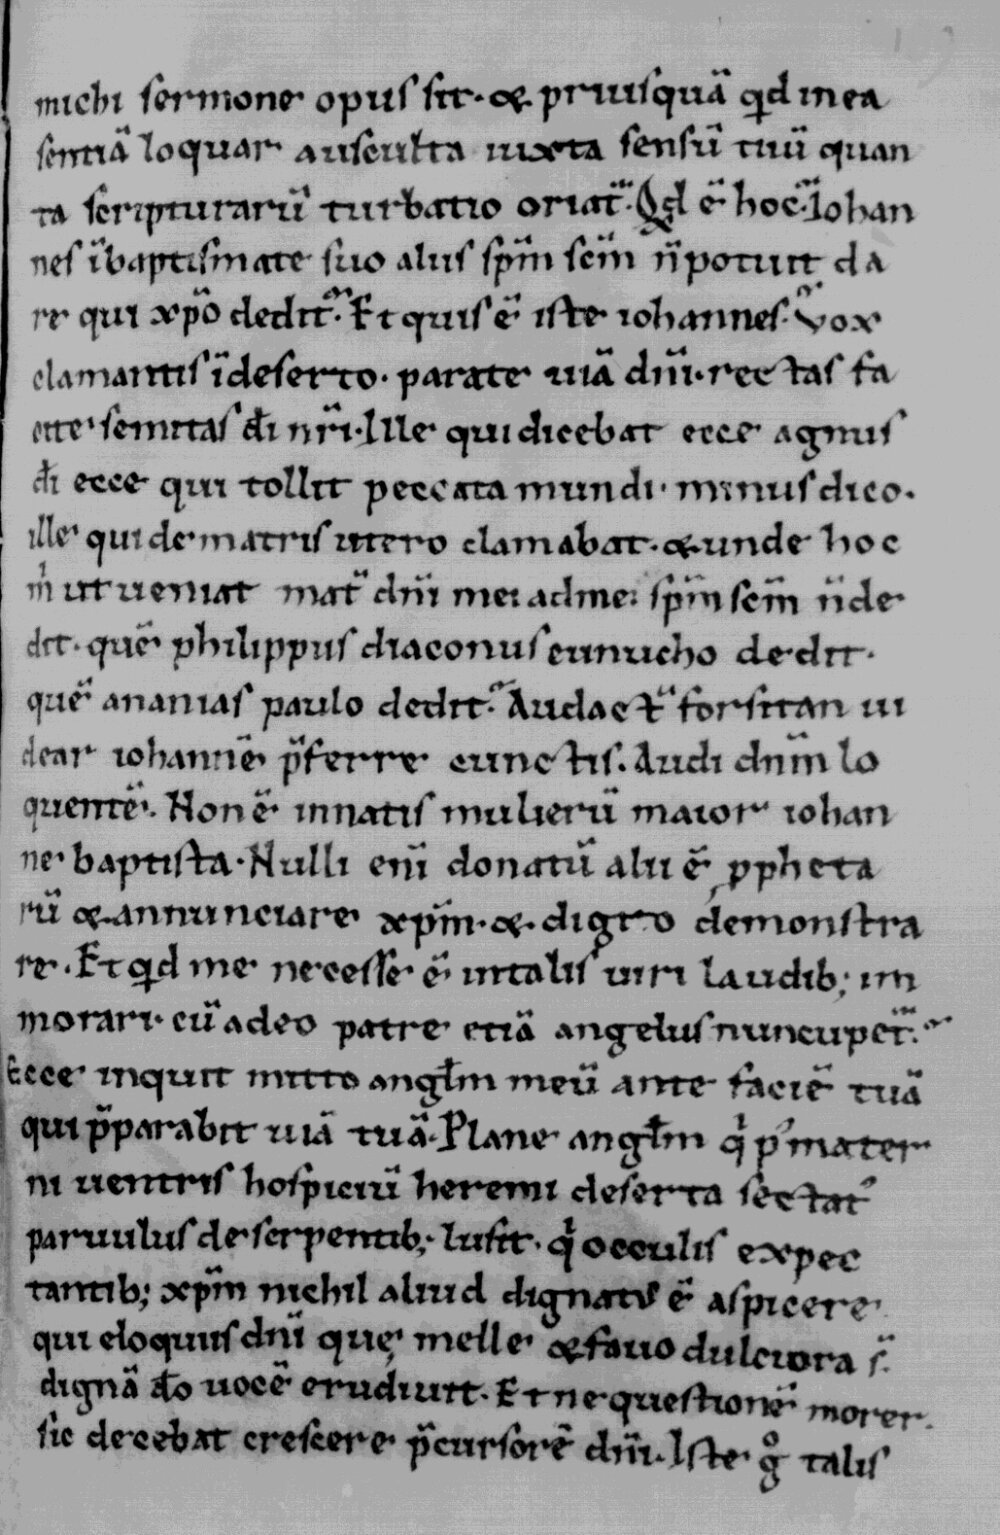 michi sermone opus sit· & priusquā qd in ea
sentiā loquar ausculta iuxta sensū tuū quan
ta scripturarū turbatio oriat̃· Qd ē hoc· Iohan
nes ī baptismate suo aliis sp̄m sc̄m n̄ potuit da
re qui xp̄o dedit· Et quis ē iste iohannes· Vox
clamantis ī deserto· parate uiā dn̄i· rectas fa
cite semitas dī nr̄i· Ille qui dicebat ecce agnus
dī ecce qui tollit peccata mundi· minus dico·
ille qui de matris utero clamabat· & unde hoc
m̍ ut ueniat mat̃ dn̄i mei ad me: sp̄m sc̄m n̄ de
dit· quē philippus diaconus eunucho dedit·
quē ananias paulo dedit· Audact̃ forsitan ui
dear iohannē p̄ferre cunctis. Audi dn̄m lo
quentē. Non ē in natis mulierū maior iohan
ne baptista· Nulli enī donatū alii ē ꝓpheta
rū & annunciare xp̄m· & digito demonstra
re. Et qd me necesse ē in talis uiri laudib; im
morari· cū a deo patre etiā angelus nuncupet̃·
Ecce inquit mitto angl̄m meū ante faciē tuā
qui p̄parabit uiā tuā· Plane angl̄m q̍ p̾ mater
ni uentris hospiciū heremi deserta sectat᷑
paruulus de serpentib; lusit· q̍ occulis expec
tantib; xp̄m nichil aliud dignatus ē aspicere
qui eloquiis dn̄i quę melle & fauo dulciora s̄·
dignā do uocē erudiuit· Et ne questionē morer·
sic decebat crescere p̄cursorē dn̄i· Iste gͦ talis